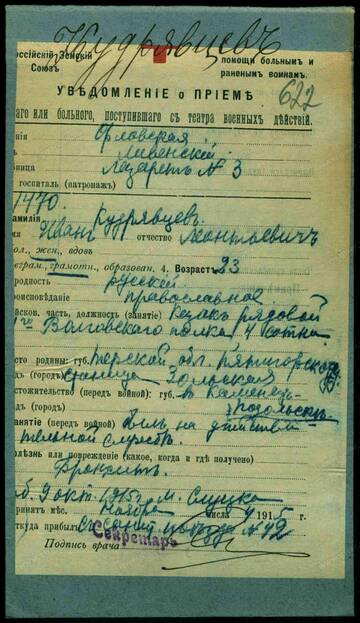 Кудрявцевъ
Россійскій Земскій
Союзъ
помощи больнымъ и
раненымъ воинамъ.
УВѢДОМЛЕНІЕ о ПРІЕМѢ
622
аго или больного, поступившаго съ театра военныхъ дѣйствій.
Орловская
Ливенскій
Лазаретъ № 3
госпиталь (патронажъ)
1470.
амилія Кудрявцевъ
Иванъ отчество Леонтьевичъ
жен., вдовъ
грамотн., образован. 4. Возрастъ 23
родность русскій
роисповѣданіе православное
йсков. часть, должность (занятіе) казакъ рядовой
1го Волгскаго полка 4 сотни
сто родины: губ. Терской обл. Пятигорскаго
(городъ) станица Зольская
стожительство (передъ войной): губ. въ Каменец-
(городъ) Подольскъ
анятіе (передъ войной) былъ на дѣйстви
тельной службѣ.
олѣзнь или поврежденіе (какое, когда и гдѣ получено)
Бронхитъ.
9 окт. 1915 г. м. Слуцкъ
ринятъ мѣс. Ноября числа 4 1915
ткуда прибылъ съ санит. поѣзда № 42
Секретарь
Подпись врача